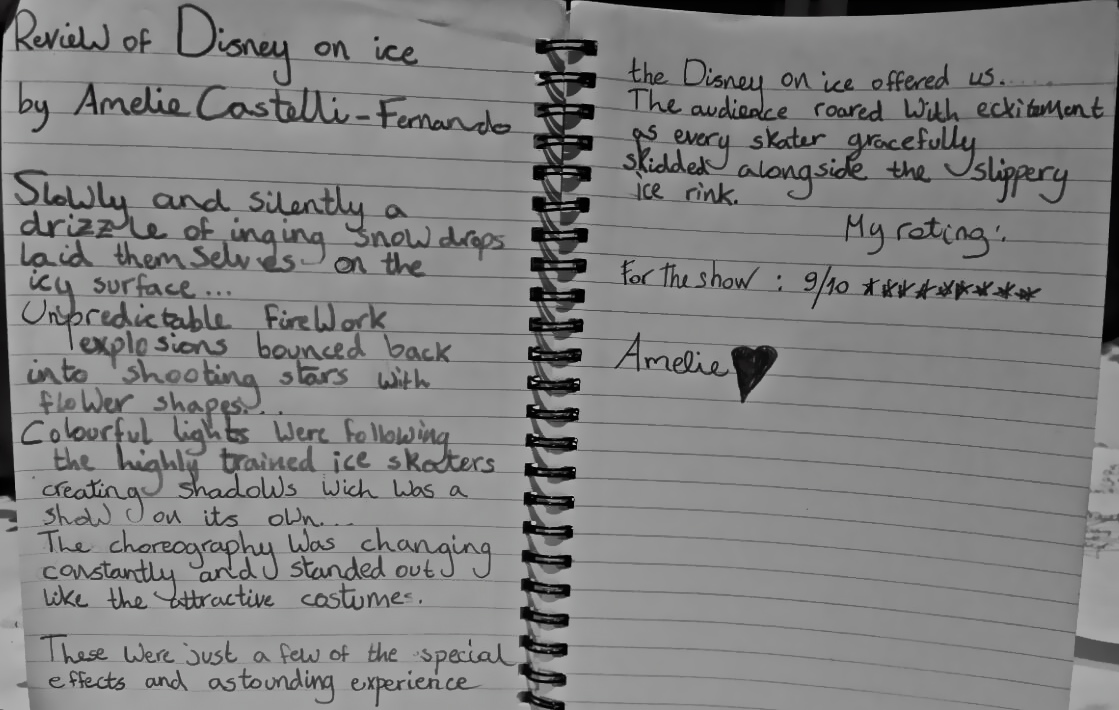 Review of Disney on ice
by Amelie Castelli-Fernando
Slowly and silently a
drizzle of inging snowdrops
laid themselves on the
icy surface...
Unpredictable firework
explosions bounced back
into shooting stars with
flower shapes...
Colourful lights were following
the highly trained ice skaters
creating shadows wich was a
show on its own...
The choreography was changing
constantly and standed out
like the attractive costumes.
These were just a few of the special
effects and astounding experience
the Disney on ice offered us......
The audience roared with eckitement
as every skater gracefully
skidded alongside the slippery
ice rink.
My rating:
For the show : 9/10 *********
Amelie